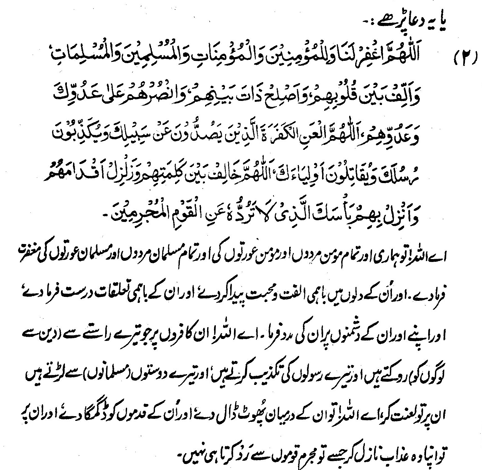 یا یہ دعا پڑھے :۔
(۲) اَللّٰهُمَّ اغْفِرْ لَنَا وَلِلْمُؤْمِنِيْنَ وَالْمُؤْمِنَاتِ وَالْمُسْلِمِيْنَ وَالْمُسْلِمَاتِ،
وَاَلِّفْ بَيْنَ قُلُوْبِهِمْ، وَاَصْلِحْ ذَاتَ بَيْنِهِمْ، وَانْصُرْهُمْ عَلٰى عَدُوِّكَ
وَعَدُوِّهِمْ، اَللّٰهُمَّ الْعَنِ الْكَفَرَةَ الَّذِيْنَ يَصُدُّوْنَ عَنْ سَبِيْلِكَ وَيُكَذِّبُوْنَ
رُسُلَكَ وَيُقَاتِلُوْنَ اَوْلِيَاءَكَ، اَللّٰهُمَّ خَالِفْ بَيْنَ كَلِمَتِهِمْ وَزَلْزِلْ اَقْدَامَهُمْ
وَاَنْزِلْ بِهِمْ بَأْسَكَ الَّذِىْ لَا تَرُدُّهٗ عَنِ الْقَوْمِ الْمُجْرِمِيْنَ ۔
اے اللہ! تو ہماری اور تمام مومن مردوں اور مومن عورتوں کی اور تمام مسلمان مردوں اور مسلمان عورتوں کی مغفرت
فرما دے۔ اور اُن کے دلوں میں باہمی الفت و محبت پیدا کر دے، اور ان کے باہمی تعلقات درست فرما دے،
اور اپنے اور ان کے دشمنوں پر ان کی مدد فرما۔ اے اللہ! ان کافروں پر جو تیرے راستے سے (دین سے
لوگوں کو) روکتے ہیں اور تیرے رسولوں کی تکذیب کرتے ہیں، اور تیرے دوستوں (مسلمانوں) سے لڑتے ہیں
ان پر تو لعنت کر، اے اللہ! تو ان کے درمیان پھوٹ ڈال دے، اور اُن کے قدموں کو ڈگمگا دے، اور ان پر
تو اپنا وہ عذاب نازل کر جسے تو مجرم قوموں سے رد کرتا ہی نہیں۔